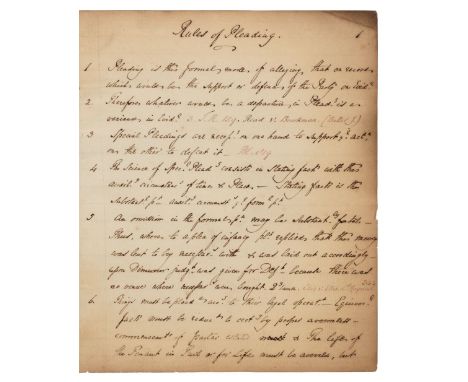 Rules of Pleading. 1
1 Pleading is the formal mode of alleging that on record
which would be the support or defence of the Party on Evid.ce
2 Therefore whatever would be a departure in Plead.g is a
variance in Evid.ce 3. T.R. Read v Brookman
3 Special Pleadings are necess.y on one hand to support y.e act.n
on the other to defeat it
4 The Science of Spec.l Plead.g consists in stating facts with their
circumstances of time & Place, — Stating facts is the
Substant.l p.t
5 An omission in the formal p.t may be Substant.y fatal —
Thus, where to a plea of infancy pl.t replied that the money
was lent to buy necess.s with & was laid out accordingly —
upon Demurrer judg.t was given for Def.t because there was
no venue where necess.s were bought
6 Things must be plead.d acc.g to their legal operat.n —
facts must be reduc.d to cert.y by proper averments —
commencement of Estates & The life of
the Tenant in Tail or for Life must be averred, but